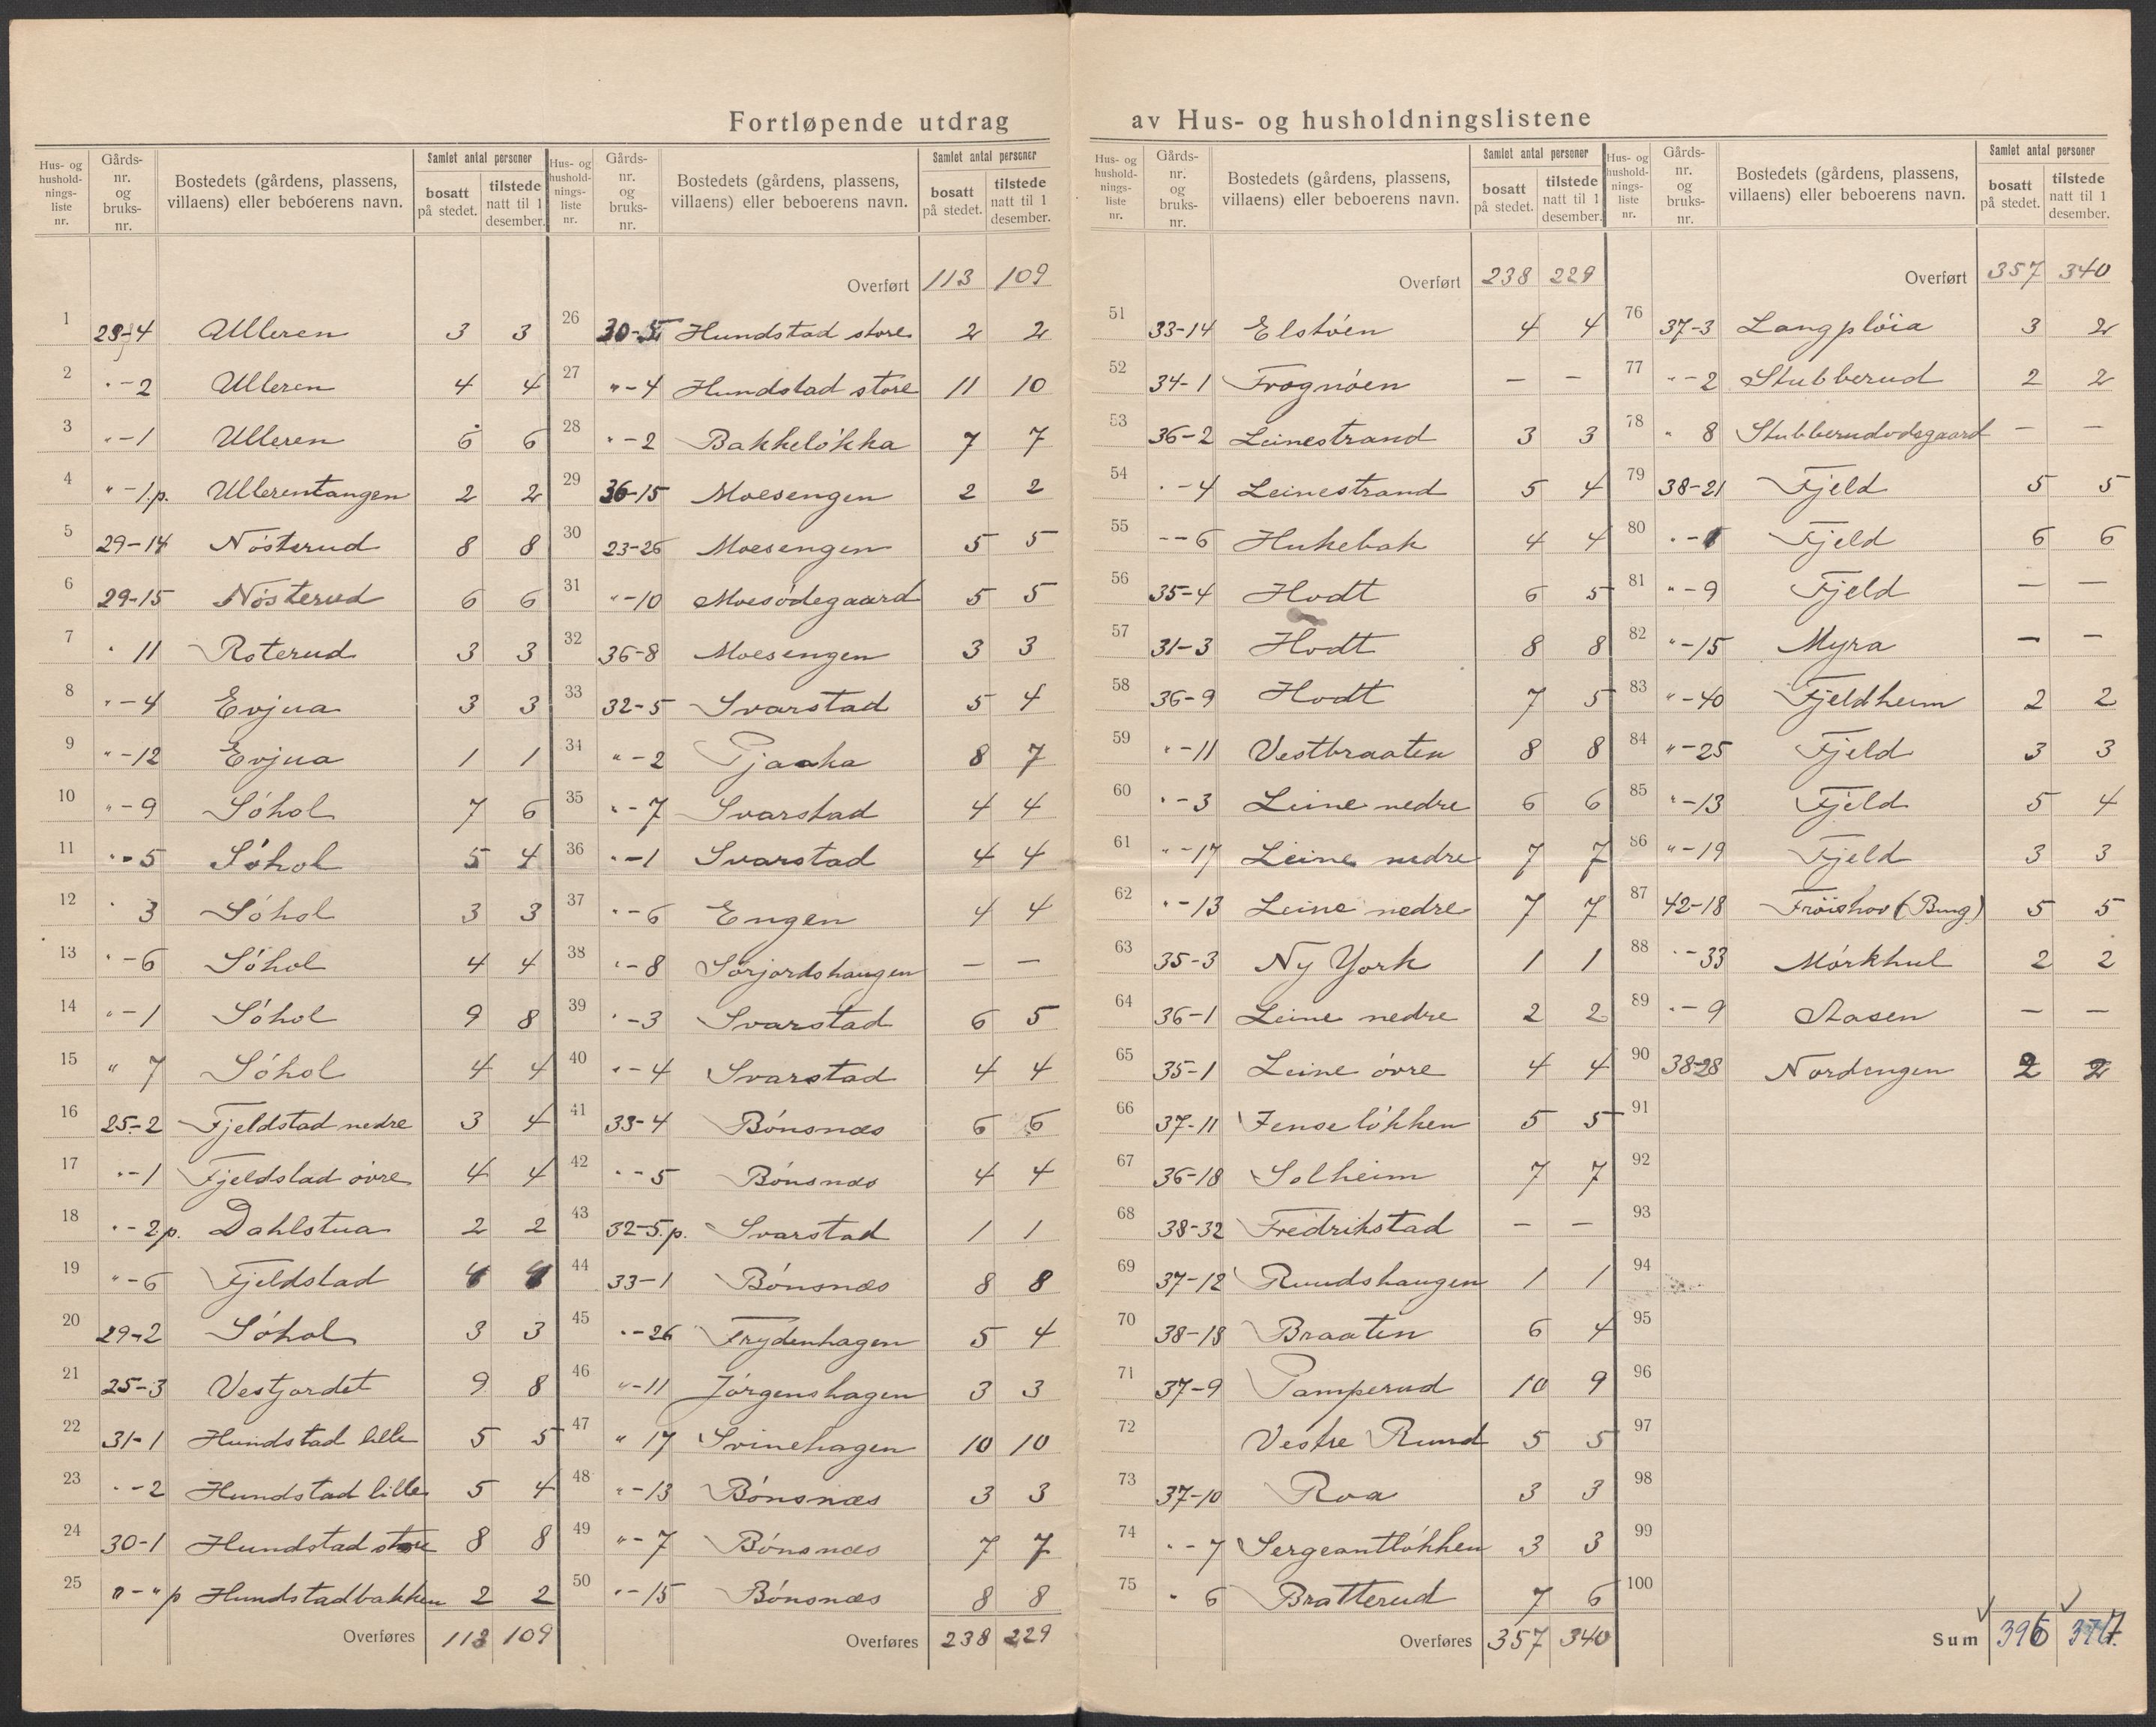 Fortløpende utdrag av Hus- og husholdningslistene
Hus- og husholdnings-liste nr. | Gårds-nr. og bruks-nr. | Bostedets (gårdens, plassens, villaens) eller beboerens navn. | Samlet antal personer | bosatt på stedet. | tilstede natt til 1 desember.
1 28-4 Ulleren 3 3
2 "-2 Ulleren 4 4
3 "-1 Ulleren 6 6
4 "-1.p. Ullerentangen 2 2
5 29-14 Nösterud 8 8
6 29-15 Nösterud 6 6
7 " 11 Roterud 3 3
8 "-4 Evjua 3 3
9 "-12 Evjua 1 1
10 "-9 Söhol 7 6
11 "-5 Söhol 5 4
12 " 3 Söhol 3 3
13 "-6 Söhol 4 4
14 "-1 Söhol 9 8
15 " 7 Söhol 4 4
16 25-2 Fjeldstad nedre 3 4
17 "-1 Fjeldstad övre 4 4
18 "-2p. Dahlstua 2 2
19 "-6 Fjeldstad 4 4
20 29-2 Söhol 3 3
21 25-3 Vestjordet 9 8
22 31-1 Hundstad lille 5 5
23 "-2 Hundstad lille 5 4
24 30-1 Hundstad store 8 8
25 "-" p Hundstadbakken 2 2
Overføres 113 109
Hus- og husholdnings-liste nr. | Gårds-nr. og bruks-nr. | Bostedets (gårdens, plassens, villaens) eller beboerens navn. | Samlet antal personer | bosatt på stedet. | tilstede natt til 1 desember.
Overført 113 109
26 30-5 Hundstad store 2 2
27 "-4 Hundstad store 11 10
28 "-2 Bakkelökka 7 7
29 36-15 Moesengen 2 2
30 23-26 Moesengen 5 5
31 "-10 Moesödegaard 5 5
32 36-8 Moesengen 3 3
33 32-5 Svarstad 5 4
34 "-2 Pjaaka 8 7
35 "-7 Svarstad 4 4
36 "-1 Svarstad 4 4
37 "-6 Engen 4 4
38 "-8 Sörjordshaugen — —
39 "-3 Svarstad 6 5
40 "-4 Svarstad 4 4
41 33-4 Bönsnæs 6 6
42 "-5 Bönsnæs 4 4
43 32-5.p. Svarstad 1 1
44 33-1 Bönsnæs 8 8
45 "-26 Frydenhagen 5 4
46 "-11 Jörgenshagen 3 3
47 " 17 Svinehagen 10 10
48 "-13 Bönsnæs 3 3
49 "-7 Bönsnæs 7 7
50 "-15 Bönsnæs 8 8
Overføres 238 229
Hus- og husholdnings-liste nr. | Gårds-nr. og bruks-nr. | Bostedets (gårdens, plassens, villaens) eller beboerens navn. | Samlet antal personer | bosatt på stedet. | tilstede natt til 1 desember.
Overført 238 229
51 33-14 Elstöen 4 4
52 34-1 Frognöen — —
53 36-2 Leinestrand 3 3
54 "-4 Leinestrand 5 4
55 "-6 Hukebak 4 4
56 35-4 Hodt 6 5
57 31-3 Hodt 8 8
58 36-9 Hodt 7 5
59 "-11 Vestbraaten 8 8
60 "-3 Leine nedre 6 6
61 "-17 Leine nedre 7 7
62 "-13 Leine nedre 7 7
63 35-3 Ny York 1 1
64 36-1 Leine nedre 2 2
65 35-1 Leine övre 4 4
66 37-11 Fenselökken 5 5
67 36-18 Solheim 7 7
68 38-32 Fredrikstad — —
69 37-12 Ruudshaugen 1 1
70 38-18 Braaten 6 4
71 37-9 Pamperud 10 9
72 Vestre Ruud 5 5
73 37-10 Roa 3 3
74 "-7 Sergeantlökken 3 3
75 " 6 Bratterud 7 6
Overføres 357 340
Hus- og husholdnings-liste nr. | Gårds-nr. og bruks-nr. | Bostedets (gårdens, plassens, villaens) eller beboerens navn. | Samlet antal personer | bosatt på stedet. | tilstede natt til 1 desember.
Overført 357 340
76 37-3 Langplöia 3 2
77 "-2 Stubberud 2 2
78 " 8 Stubberudödegaard — —
79 38-21 Fjeld 5 5
80 "- Fjeld 6 6
81 "-9 Fjeld — —
82 "-15 Myra — —
83 "-40 Fjeldheim 2 2
84 "-25 Fjeld 3 3
85 "-13 Fjeld 5 4
86 "-19 Fjeld 3 3
87 42-18 Fröishov (Bung) 5 5
88 "-33 Mörkhul 2 2
89 "-9 Aasen — —
90 38-28 Nordengen 2 2
91
92
93
94
95
96
97
98
99
100
Sum 396